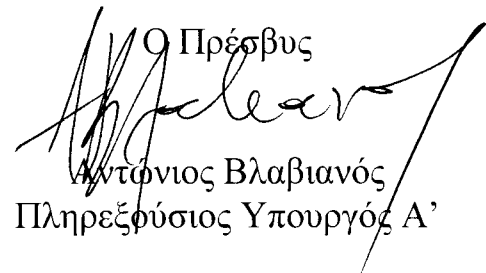 Ο Πρέσβυς
Αντώνιος Βλαβιανός
Πληρεξούσιος Υπουργός Α’